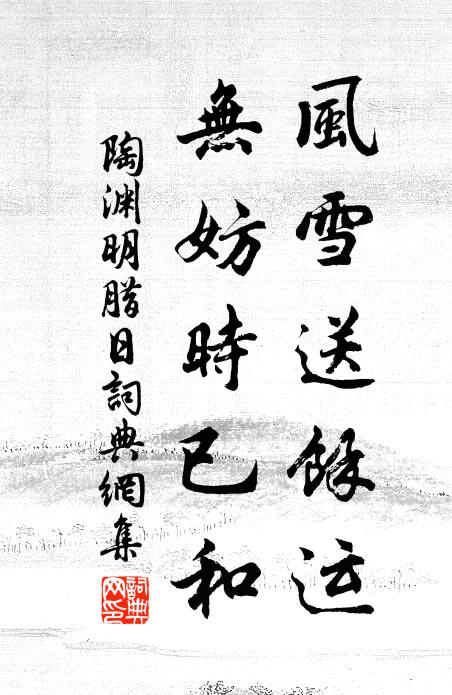 風雪送餘运
無妨時已和
陶渊明腊日詞典網集
詞典网印